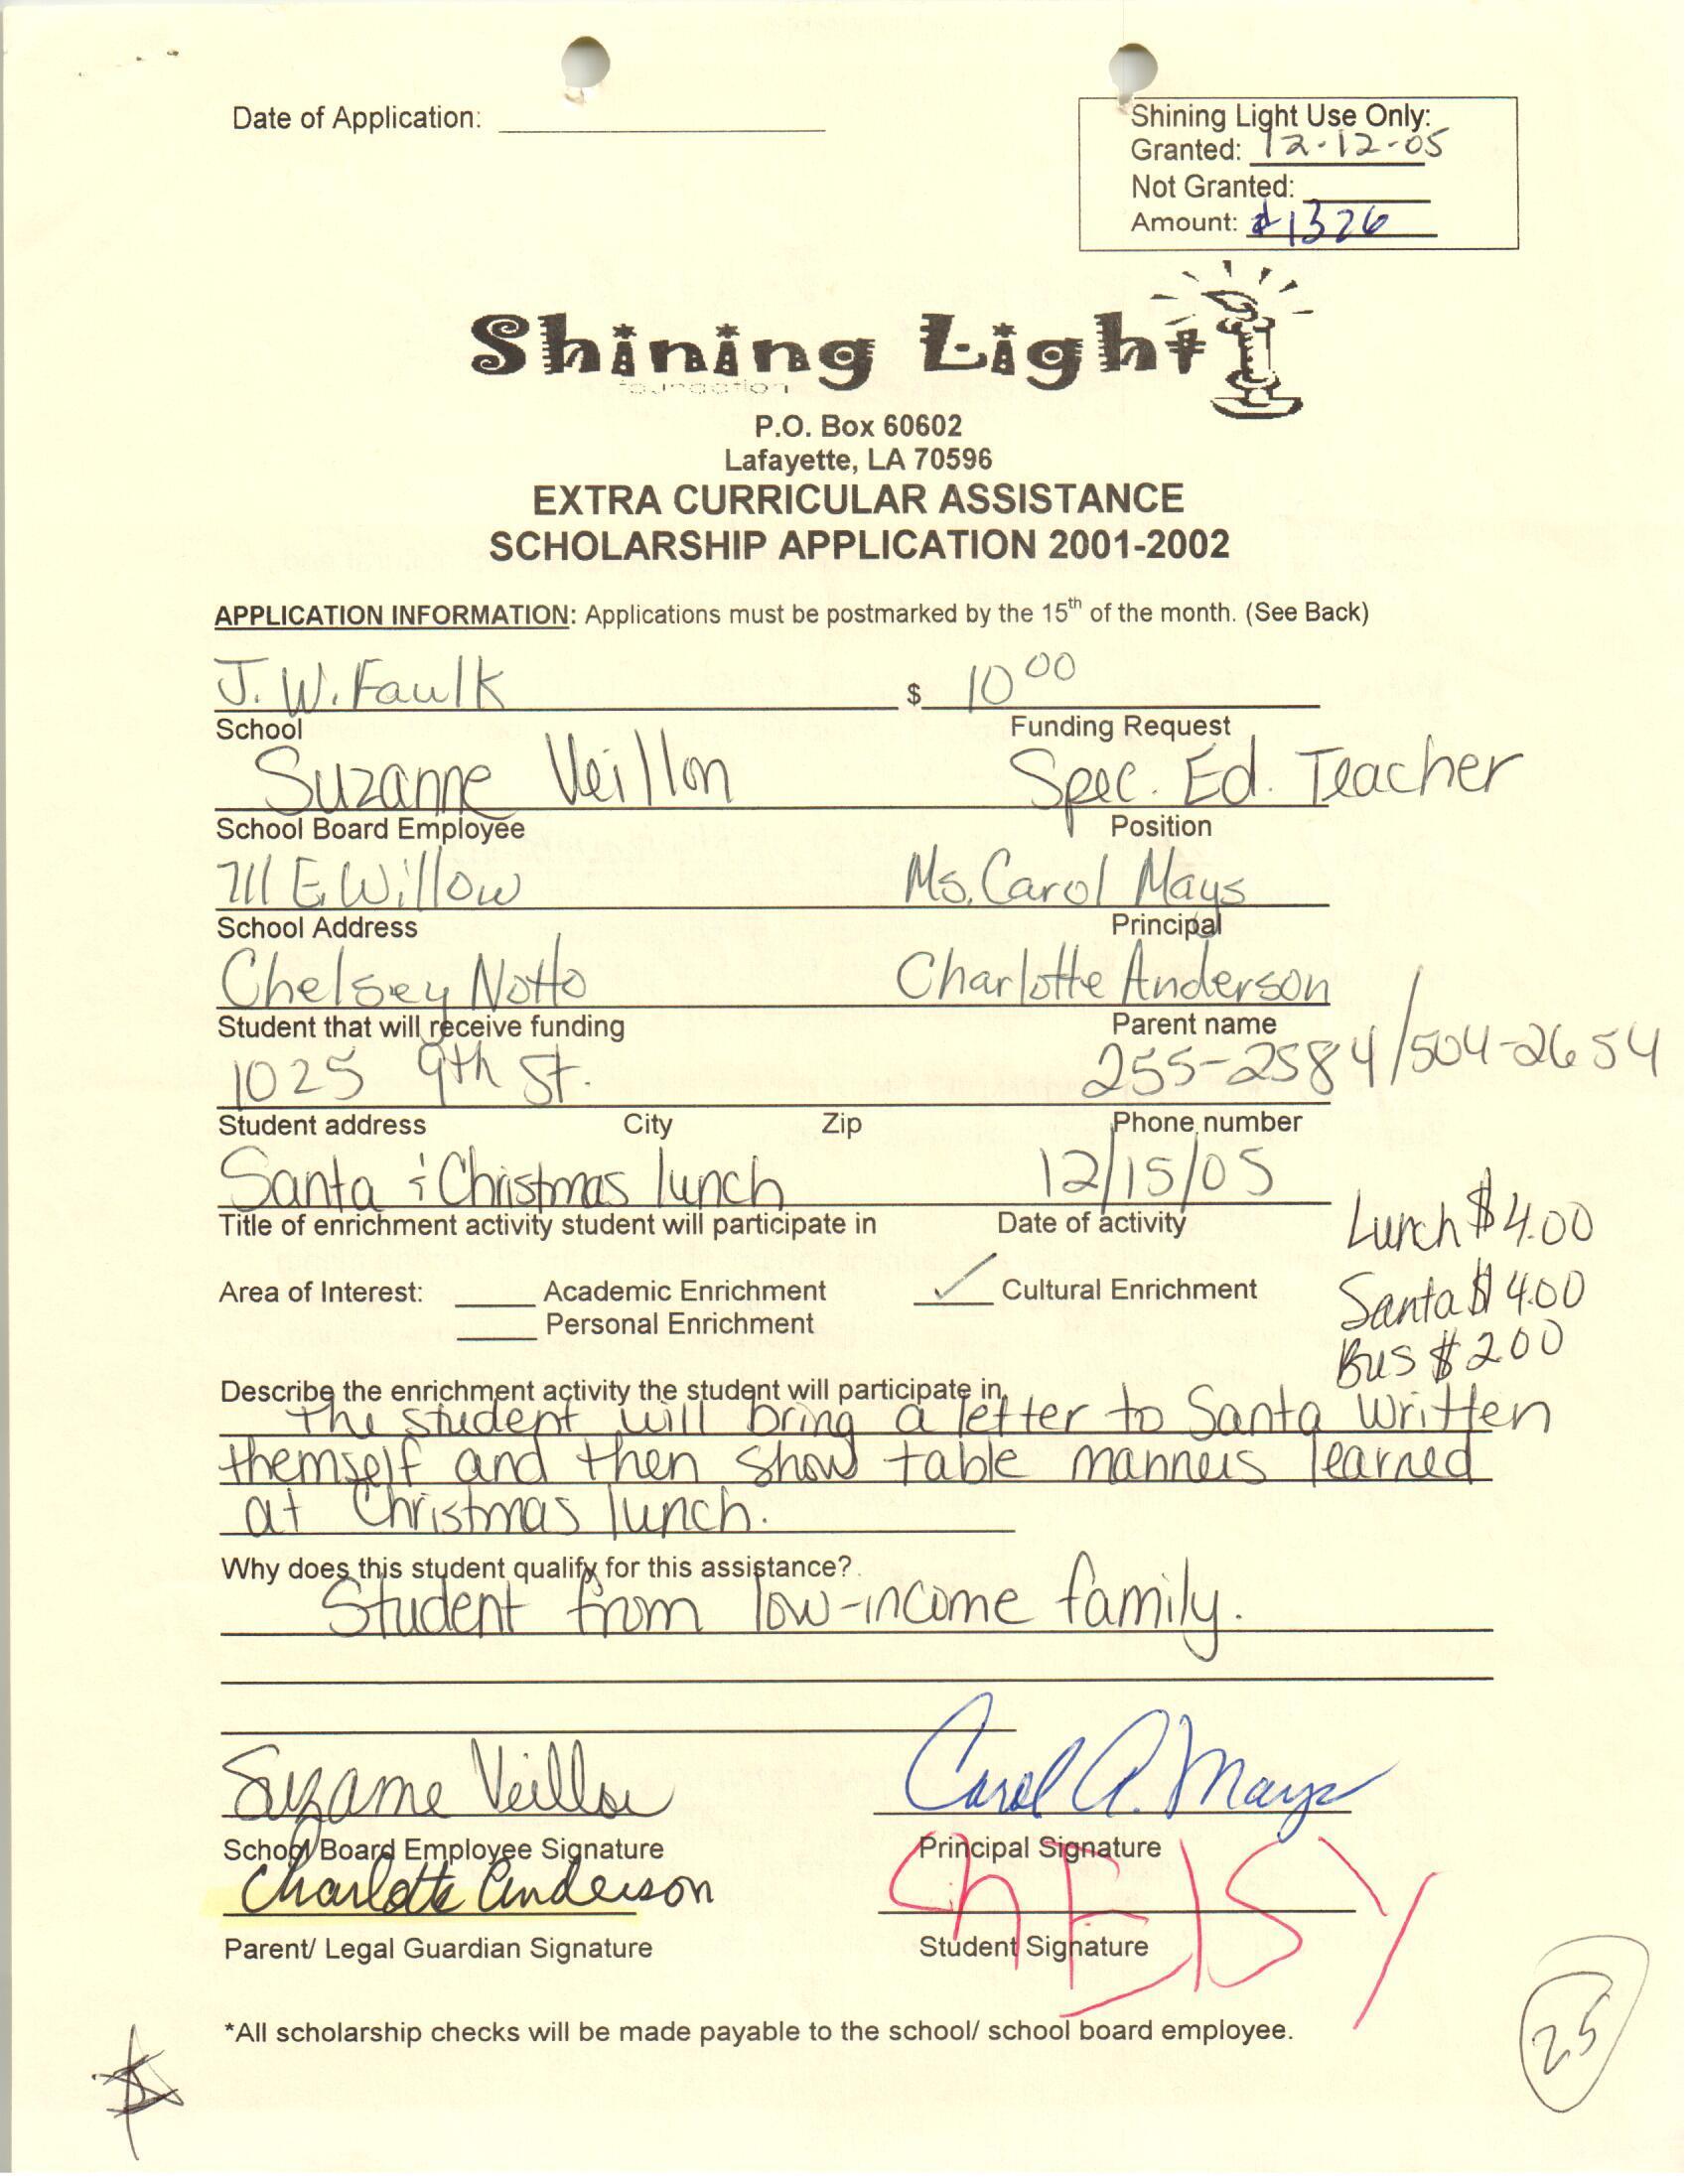 Date of Application:
Shining Light Use Only:
Granted: 12-12-05
Not Granted:
Amount: $1326
Shining Light
foundation
P.O. Box 60602
Lafayette, LA 70596
EXTRA CURRICULAR ASSISTANCE
SCHOLARSHIP APPLICATION 2001-2002
APPLICATION INFORMATION: Applications must be postmarked by the 15th of the month. (See Back)
J. W. Faulk $ 10 00
School Funding Request
Suzanne Veillon Spec. Ed. Teacher
School Board Employee Position
711 E. Willow Ms. Carol Mays
School Address Principal
Chelsey Notto Charlotte Anderson
Student that will receive funding Parent name
1025 9th St. 255-2584/504-2654
Student address City Zip Phone number
Santa & Christmas lunch 12/15/05
Title of enrichment activity student will participate in Date of activity
Lunch $4.00
Area of Interest: Academic Enrichment ✓ Cultural Enrichment
Santa $4.00
Personal Enrichment
Bus $2.00
Describe the enrichment activity the student will participate in.
The student will bring a letter to Santa written
themself and then show table manners learned
at Christmas lunch.
Why does this student qualify for this assistance?
Student from low-income family.
Suzanne Veillon Carol A. Mays
School Board Employee Signature Principal Signature
Charlotte Anderson ChElSY
Parent/ Legal Guardian Signature Student Signature
*All scholarship checks will be made payable to the school/ school board employee.
25